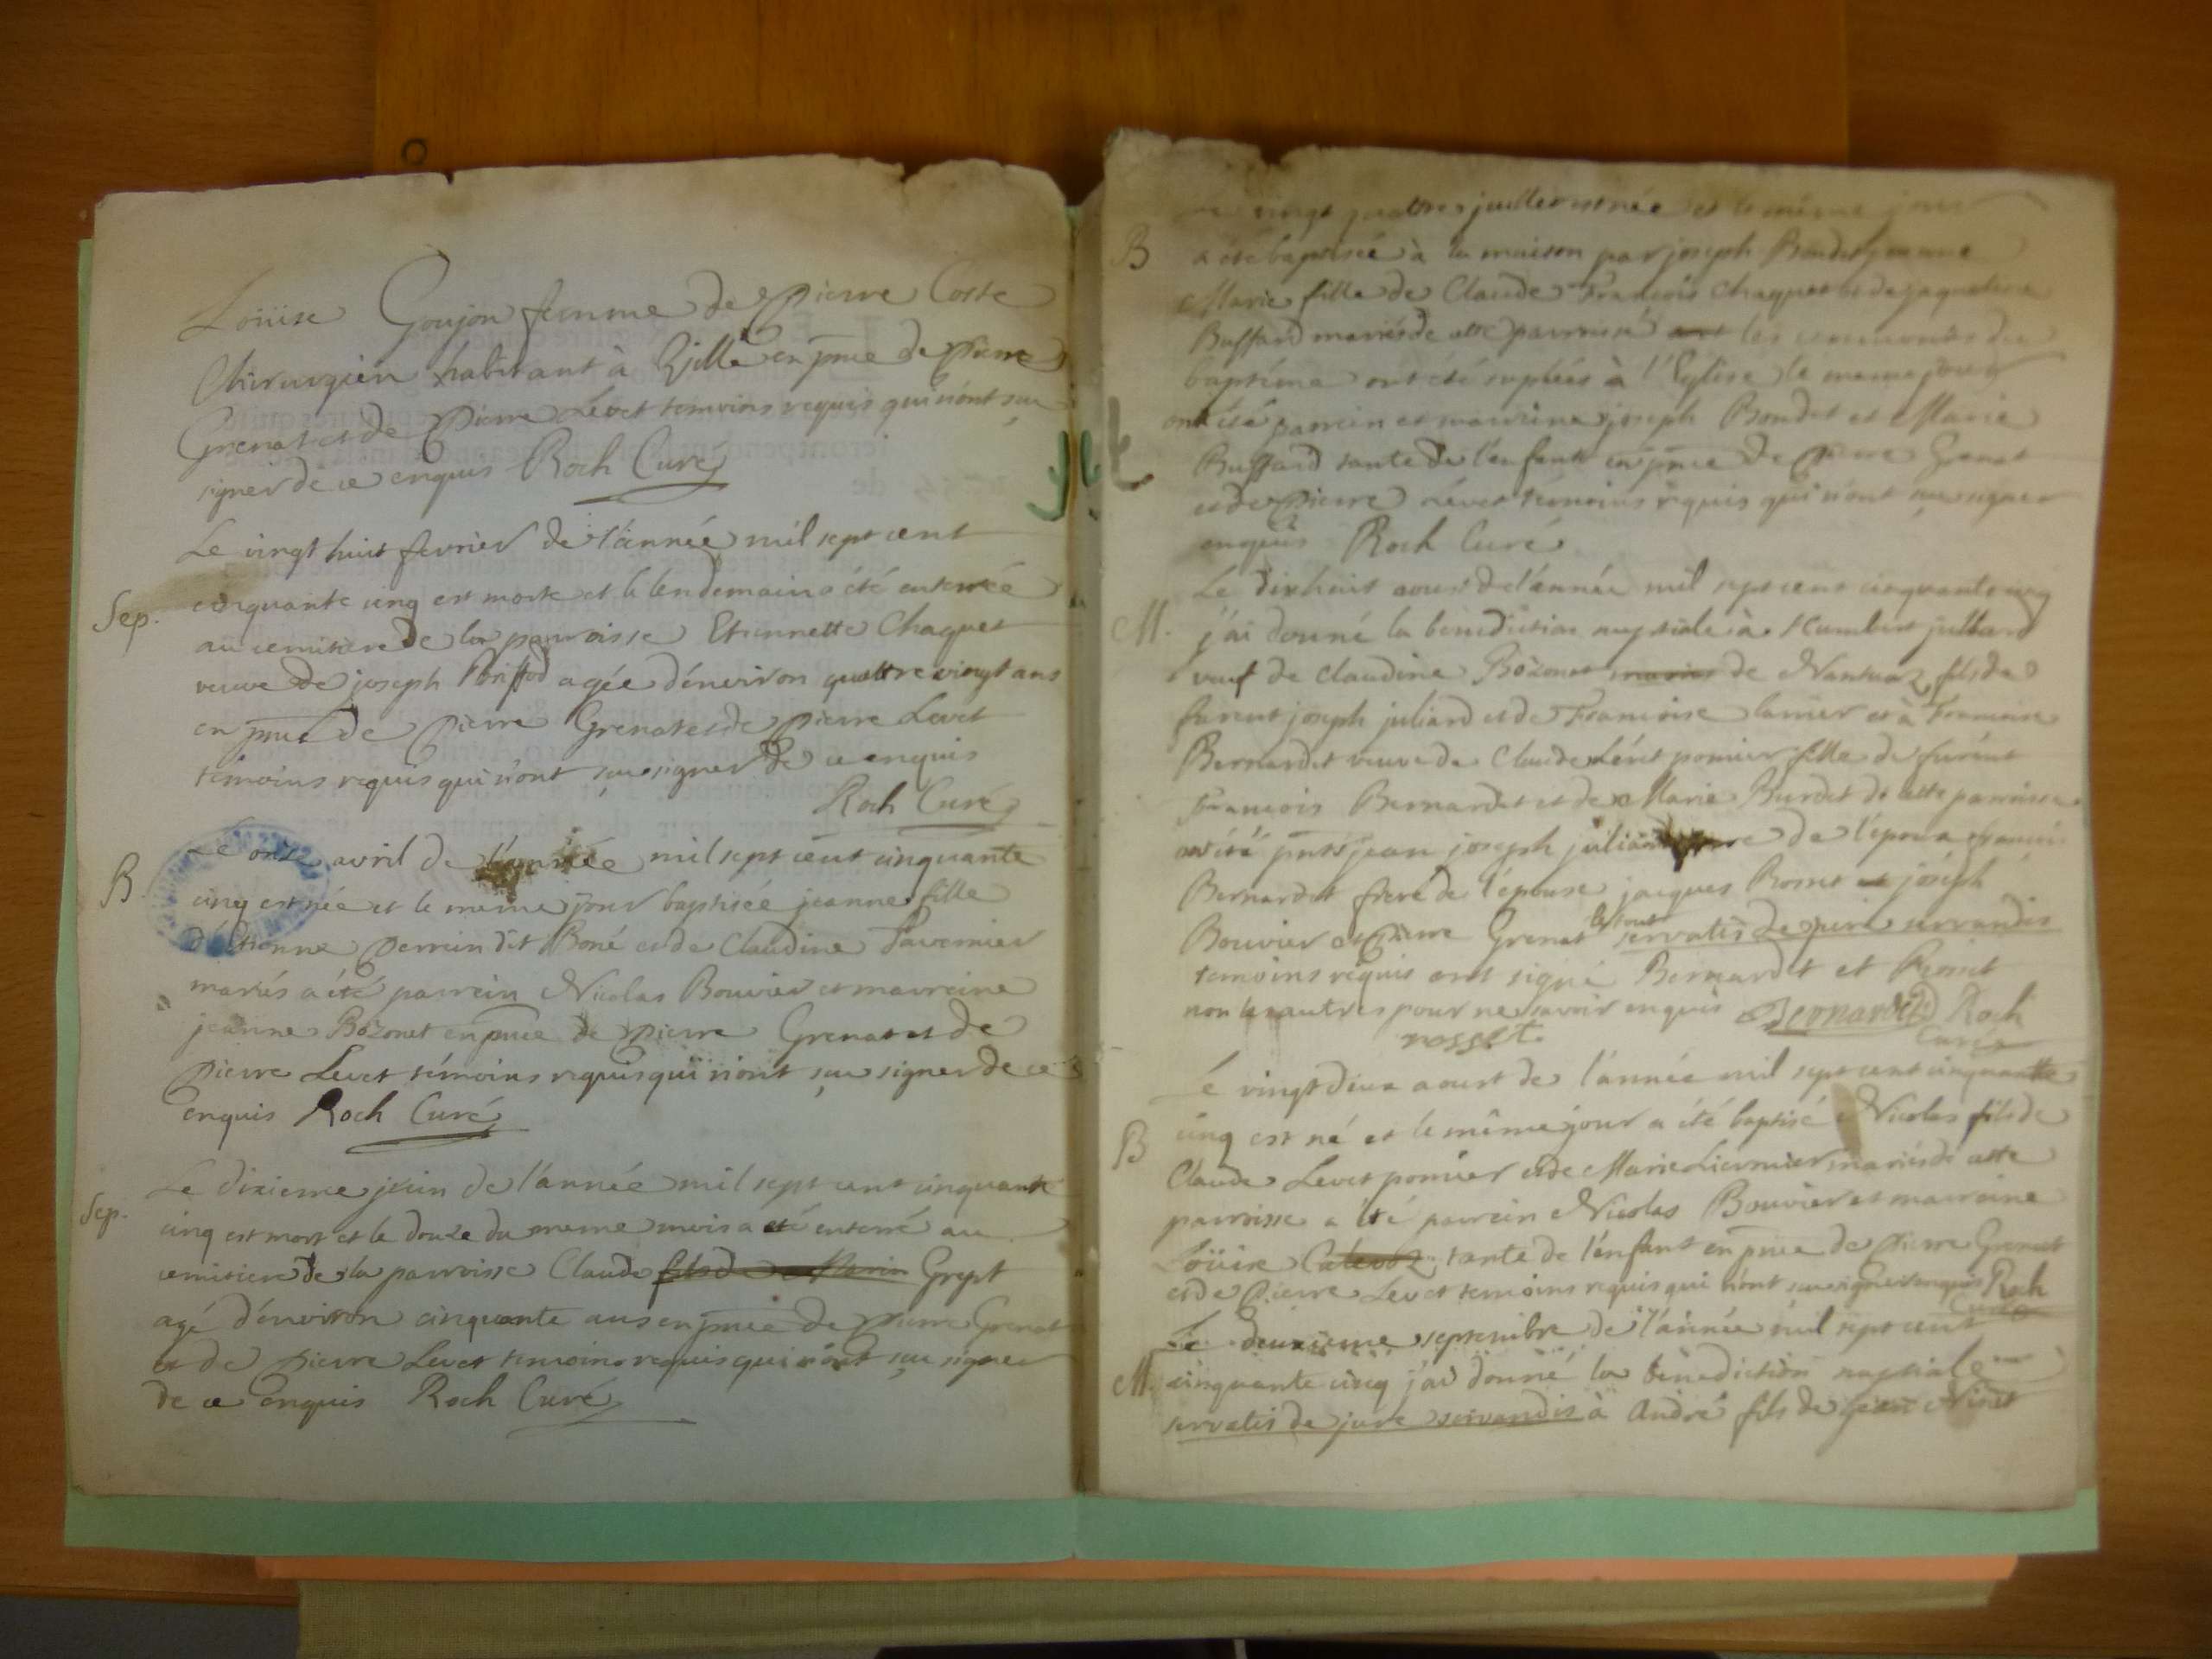 Loüise Goujon femme de Pierre Coste
Chirurgien habitant à Gille en pnce de Pierre
Grenat et de Pierre Levet temoins requis qui n'ont sçu
signer de ce enquis Roch Curé
Le vingt huit fevrier de l'année mil sept cent
Sep.
cinquante cinq est morte et le lendemain a été enterrée
au cemitiere de la parroisse Etiennette Chaquet
veuve de joseph Briffod agée d'environ quattre vingt ans
en pnce de Pierre Grenat et de Pierre Levet
témoins requis qui n'ont sçu signer de ce enquis
Roch Curé
Le onze avril de l'année mil sept cent cinquante
B.
cinq est née et le meme jour baptisée jeanne fille
d'Etienne Perrin dit Boné et de Claudine Tavernier
mariés a été parrein Nicolas Bouvier et marreine
jeanne Bozonet en pnce de pierre Grenat et de
Pierre Levet témoins requis qui n'ont sçu signer de ce
enquis Roch Curé
Le dixieme juin de l'année mil sept cent cinquante
Sep.
cinq est mort et le douze du meme mois a été enterré au
cemitiere de la parroisse Claude fils de Marin Grept
agé d'environ cinquante ans en pnce de Pierre Grenat
et de Pierre Levet temoins requis qui n'ont sçu signer
de ce enquis Roch Curé
vingt quattre juillet est née et le même jour
B
a été baptisée à la maison par joseph Bondet
Marie fille de Claude François Chaquet et de jaqueline
Buffard mariés de cette parroisse les ceremonies du
baptême ont été suplées à l'Eglise le meme jour
ont été parrein et marreine joseph Bondet et Marie
Buffard tante de l'enfant en pnce de Pierre Grenat
et de Pierre Levet témoins requis qui n'ont sçu signer
enquis Roch Curé
Le dixhuit aoust de l'année mil sept cent cinquante cinq
M.
j'ai donné la benediction nuptiale à Humbert julliard
veuf de Claudine Bozonet de Nantua fils de
furent joseph juliard et de Francoise lanier et à Francoise
Bernardet veuve de Claude Levet ponier fille de furent
François Bernardet et de Marie Burdet de cette parroisse
ont été pnts jean joseph juliard frere de l'epoux francois
Bernardet frere de l'épouse jacques Rosset et joseph
Bouvier et Pierre Grenat le tout servatis de jure servandis
temoins requis ont signé Bernardet et Rosset
non les autres pour ne savoir enquis Bernardet Roch
rosset. Curé
Le vingt deux aoust de l'année mil sept cent cinquante
B
cinq est né et le même jour a été baptisé Nicolas fils de
Claude Levet ponier et de Marie Liermier mariés de cette
parroisse a été parrein Nicolas Bouvier et marreine
Loüise Calevoz tante de l'enfant en pnce de Pierre Grenat
et de Pierre Levet temoins requis qui n'ont sçu signer enquis Roch
Curé
Le deuxieme septembre de l'année mil sept cent
M.
cinquante cinq j'ai donné la bénédiction nuptiale
servatis de jure servandis à André fils de jean Ninet